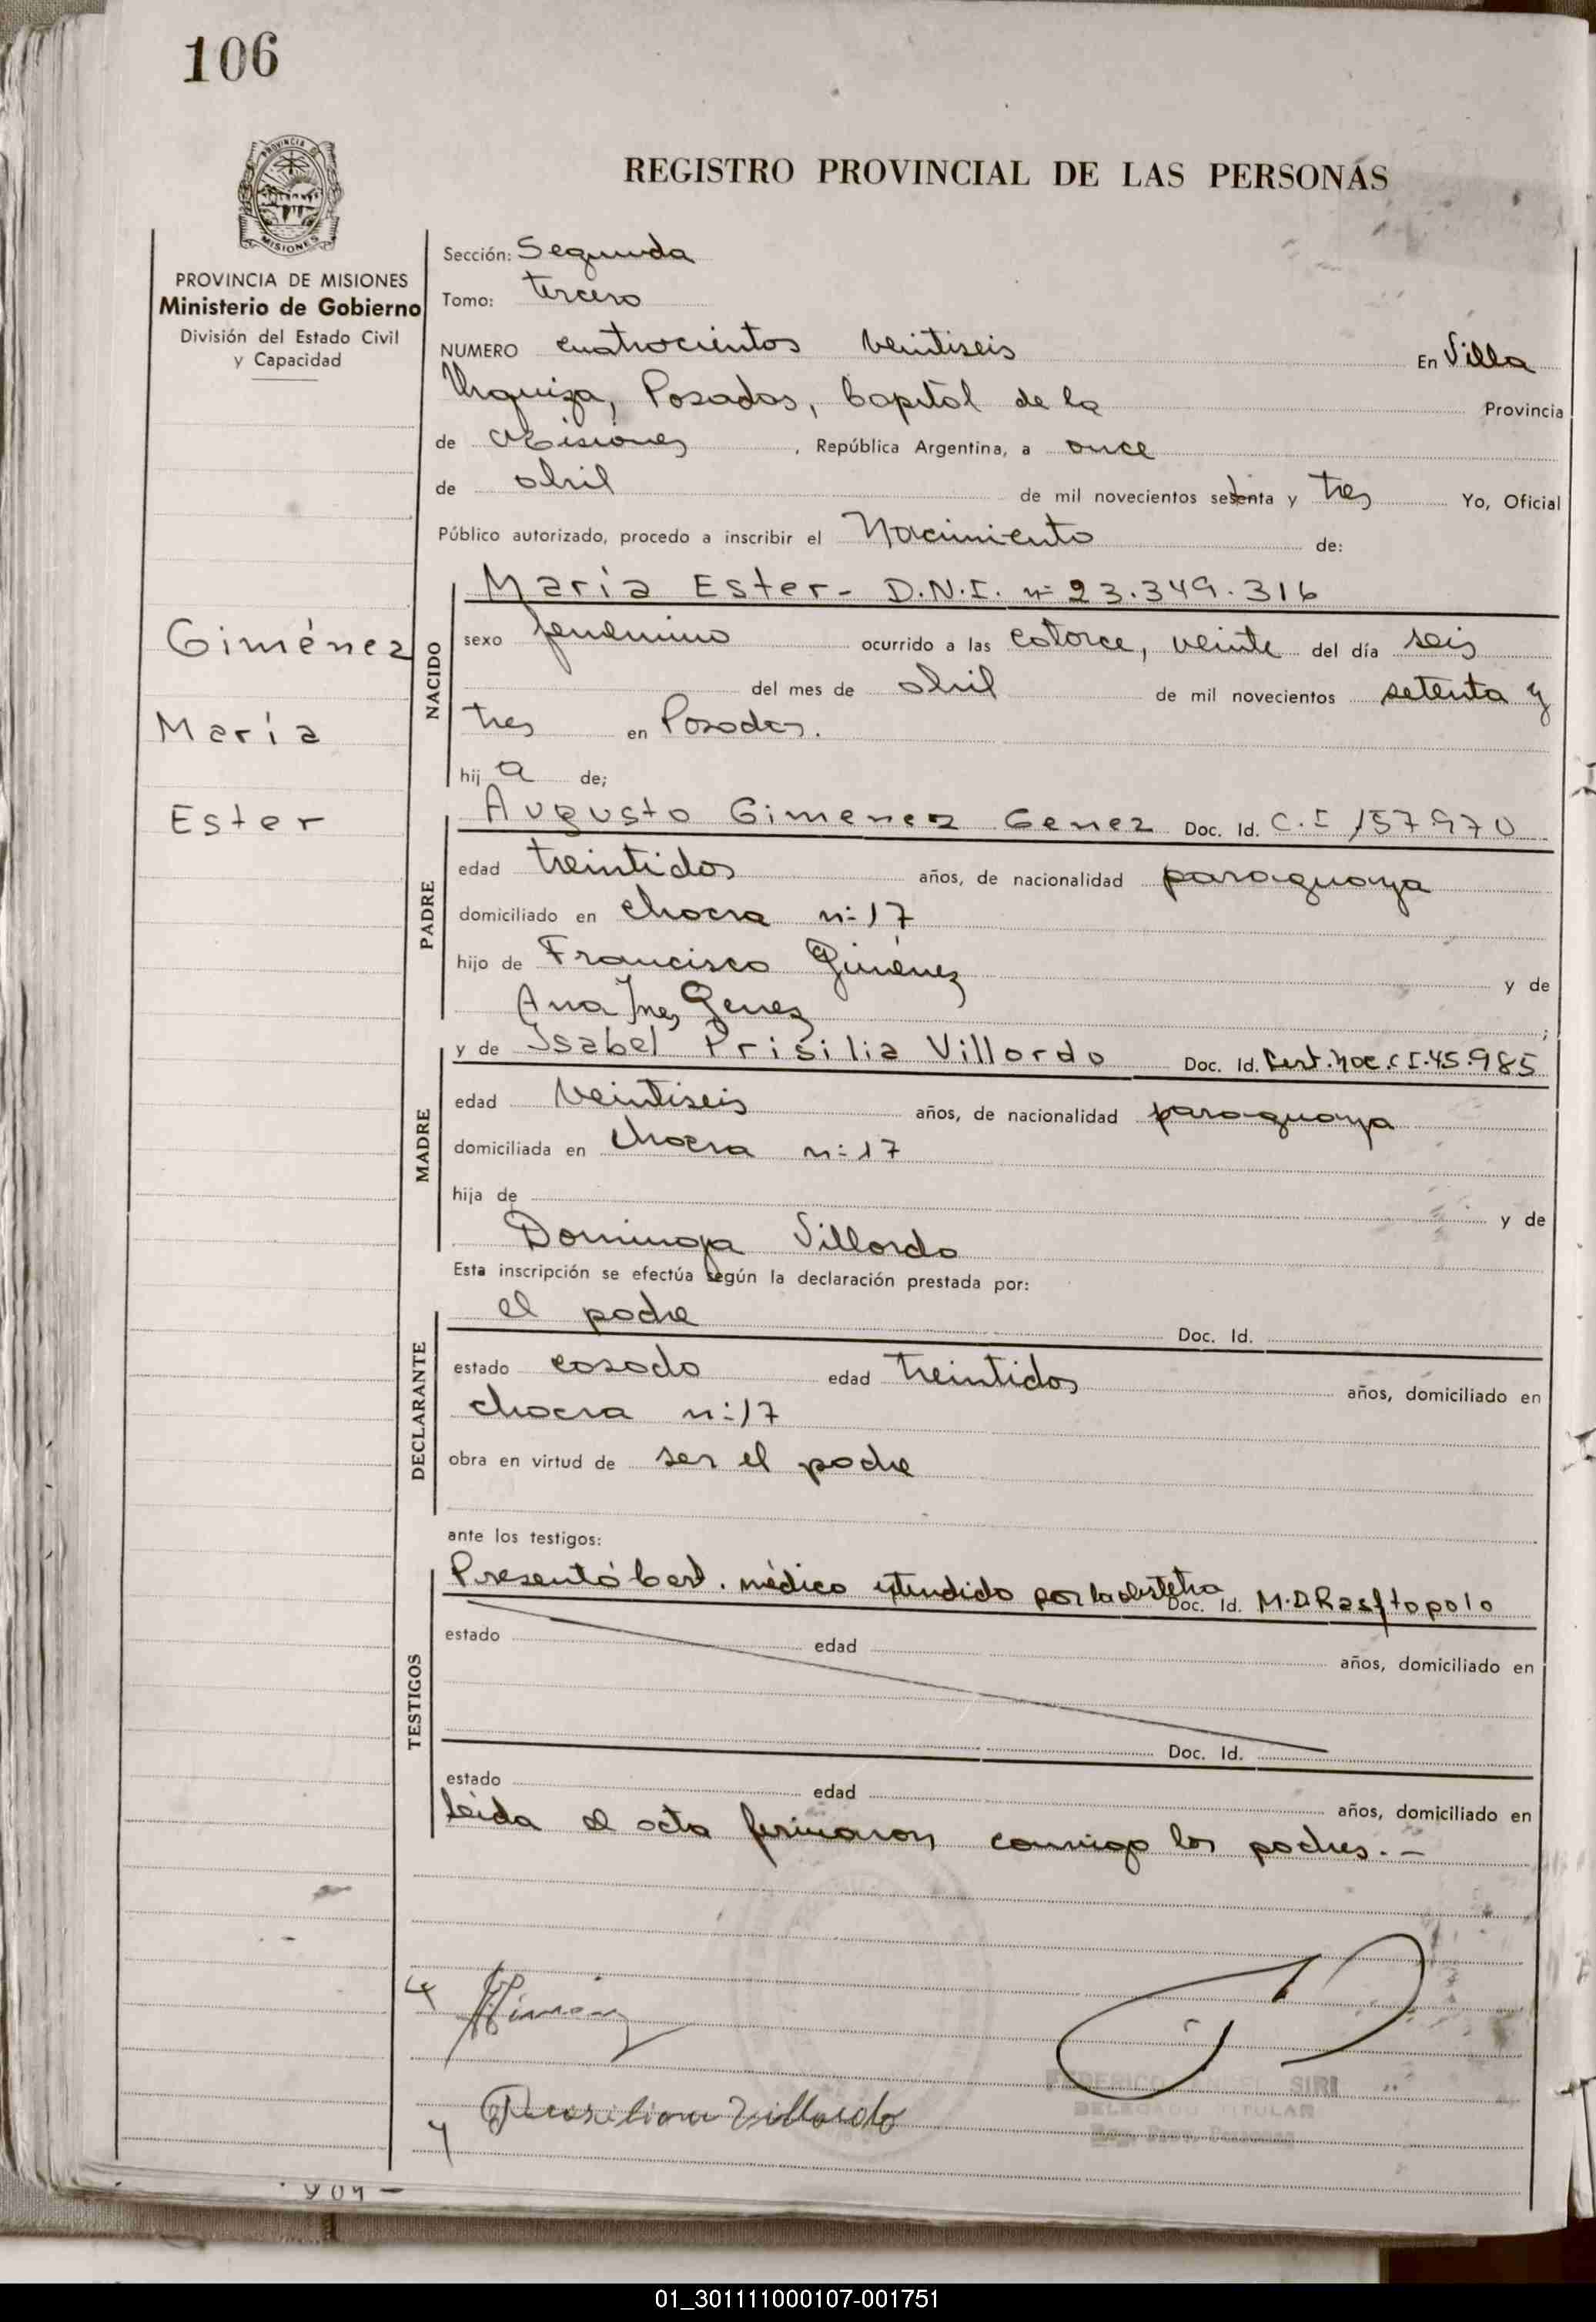 106
PROVINCIA DE
MISIONES
REGISTRO PROVINCIAL DE LAS PERSONAS
PROVINCIA DE MISIONES
Ministerio de Gobierno
División del Estado Civil
y Capacidad
Sección: Segunda
Tomo: tercero
NUMERO cuatrocientos veintiseis En Villa
Urquiza, Posadas, Capital de la Provincia
de Misiones, República Argentina, a once
de abril de mil novecientos setenta y tres Yo, Oficial
Público autorizado, procedo a inscribir el Nacimiento de:
Giménez
María
Ester
NACIDO
María Ester - D.N.I. nº 23.349.316
sexo femenino ocurrido a las catorce, veinte del día seis
del mes de abril de mil novecientos setenta y
tres en Posadas.
hij a de;
PADRE
Augusto Gimenez Genez Doc. Id. C.I 157970
edad treintidos años, de nacionalidad paraguaya
domiciliado en chacra n:17
hijo de Francisco Giménez y de
Ana Ines Genez ;
MADRE
y de Isabel Prisilia Villordo Doc. Id. Cert. nac. C I. 45.985
edad veintiseis años, de nacionalidad paraguaya
domiciliada en chacra n:17
hija de y de
Dominga Villordo
Esta inscripción se efectúa según la declaración prestada por:
DECLARANTE
el padre Doc. Id.
estado casado edad treintidos años, domiciliado en
chacra n:17
obra en virtud de ser el padre
ante los testigos:
TESTIGOS
Presentó Cert. médico extendido por la obstetra Doc. Id. M.D.Rasftopolo
estado edad años, domiciliado en
Doc. Id.
estado edad años, domiciliado en
leida el acta firmaron conmigo los padres. -
Villordo
SIRI
DELEGADO TITULAR
01_301111000107-001751